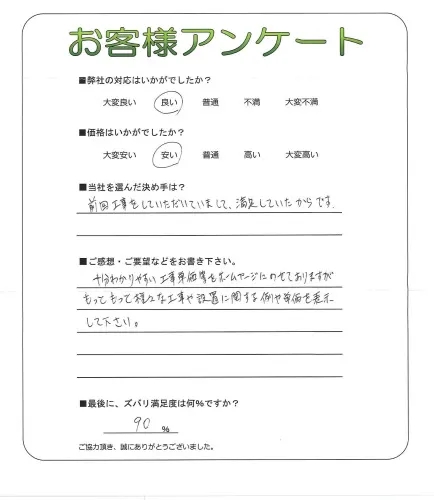 お客様アンケート
■弊社の対応はいかがでしたか?
大変良い 良い 普通 不満 大変不満
■価格はいかがでしたか?
大変安い 安い 普通 高い 大変高い
■当社を選んだ決め手は?
前回工事をしていただいていまして、満足していたからです。
■ご感想・ご要望などをお書き下さい。
十分わかりやすい工事単価等をホームページにのせてありますが
もってもって様々な工事や設置に関する例や単価を表示
して下さい。
■最後に、ズバリ満足度は何%ですか?
90 %
ご協力頂き、誠にありがとうございました。